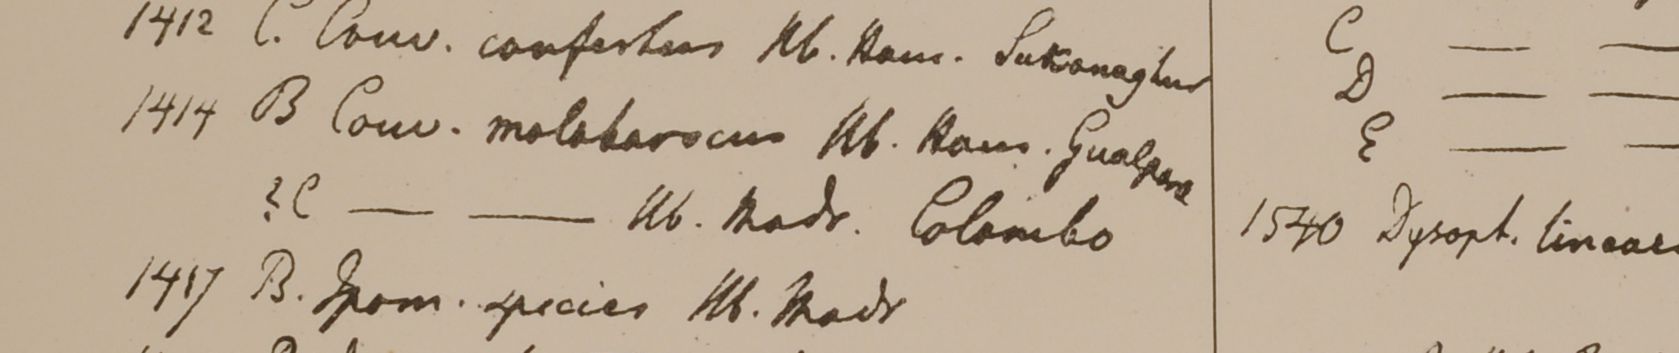 1412 C. Conv. confertus Hb. Ham. Sukanaghur
1414 B Conv. malabaricus Hb. Ham. Gualpara
?C — — Hb. Madr. Colombo
1417 B. Ipom. species Hb. Madr
C — —
D — —
E — —
1540 Dysoph. linear